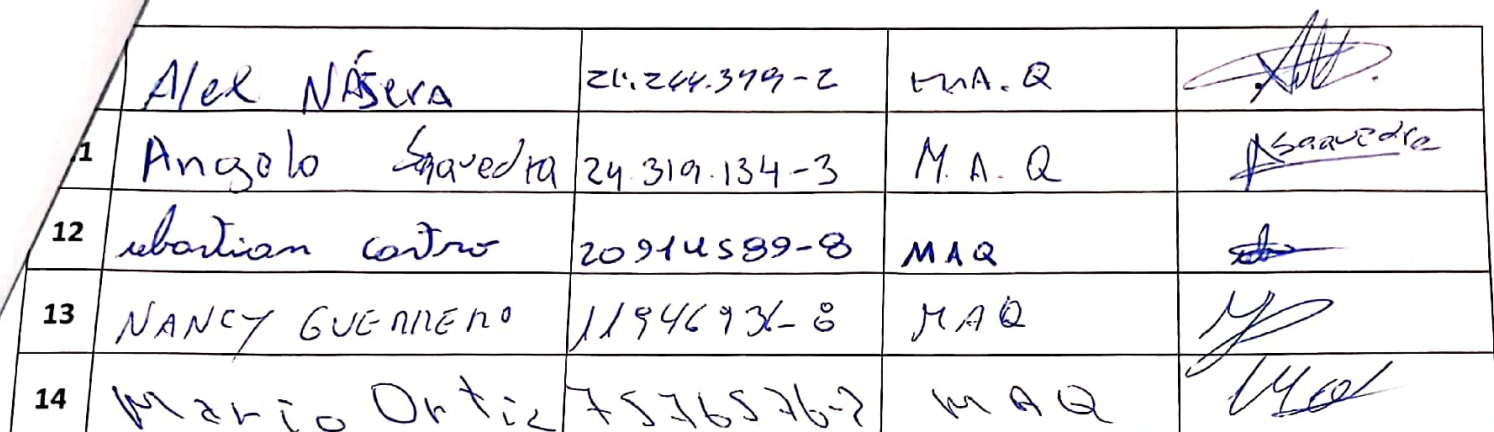 Alex NÁSERA 21.244.379-2 MA.Q
1 Angelo Saavedra 24.319.134-3 M.A.Q ASaavedra
12 sebastian castro 20914589-8 MAQ
13 NANCY GUERRERO 11946936-8 MAQ
14 Mario Ortiz 7576576-2 MAQ